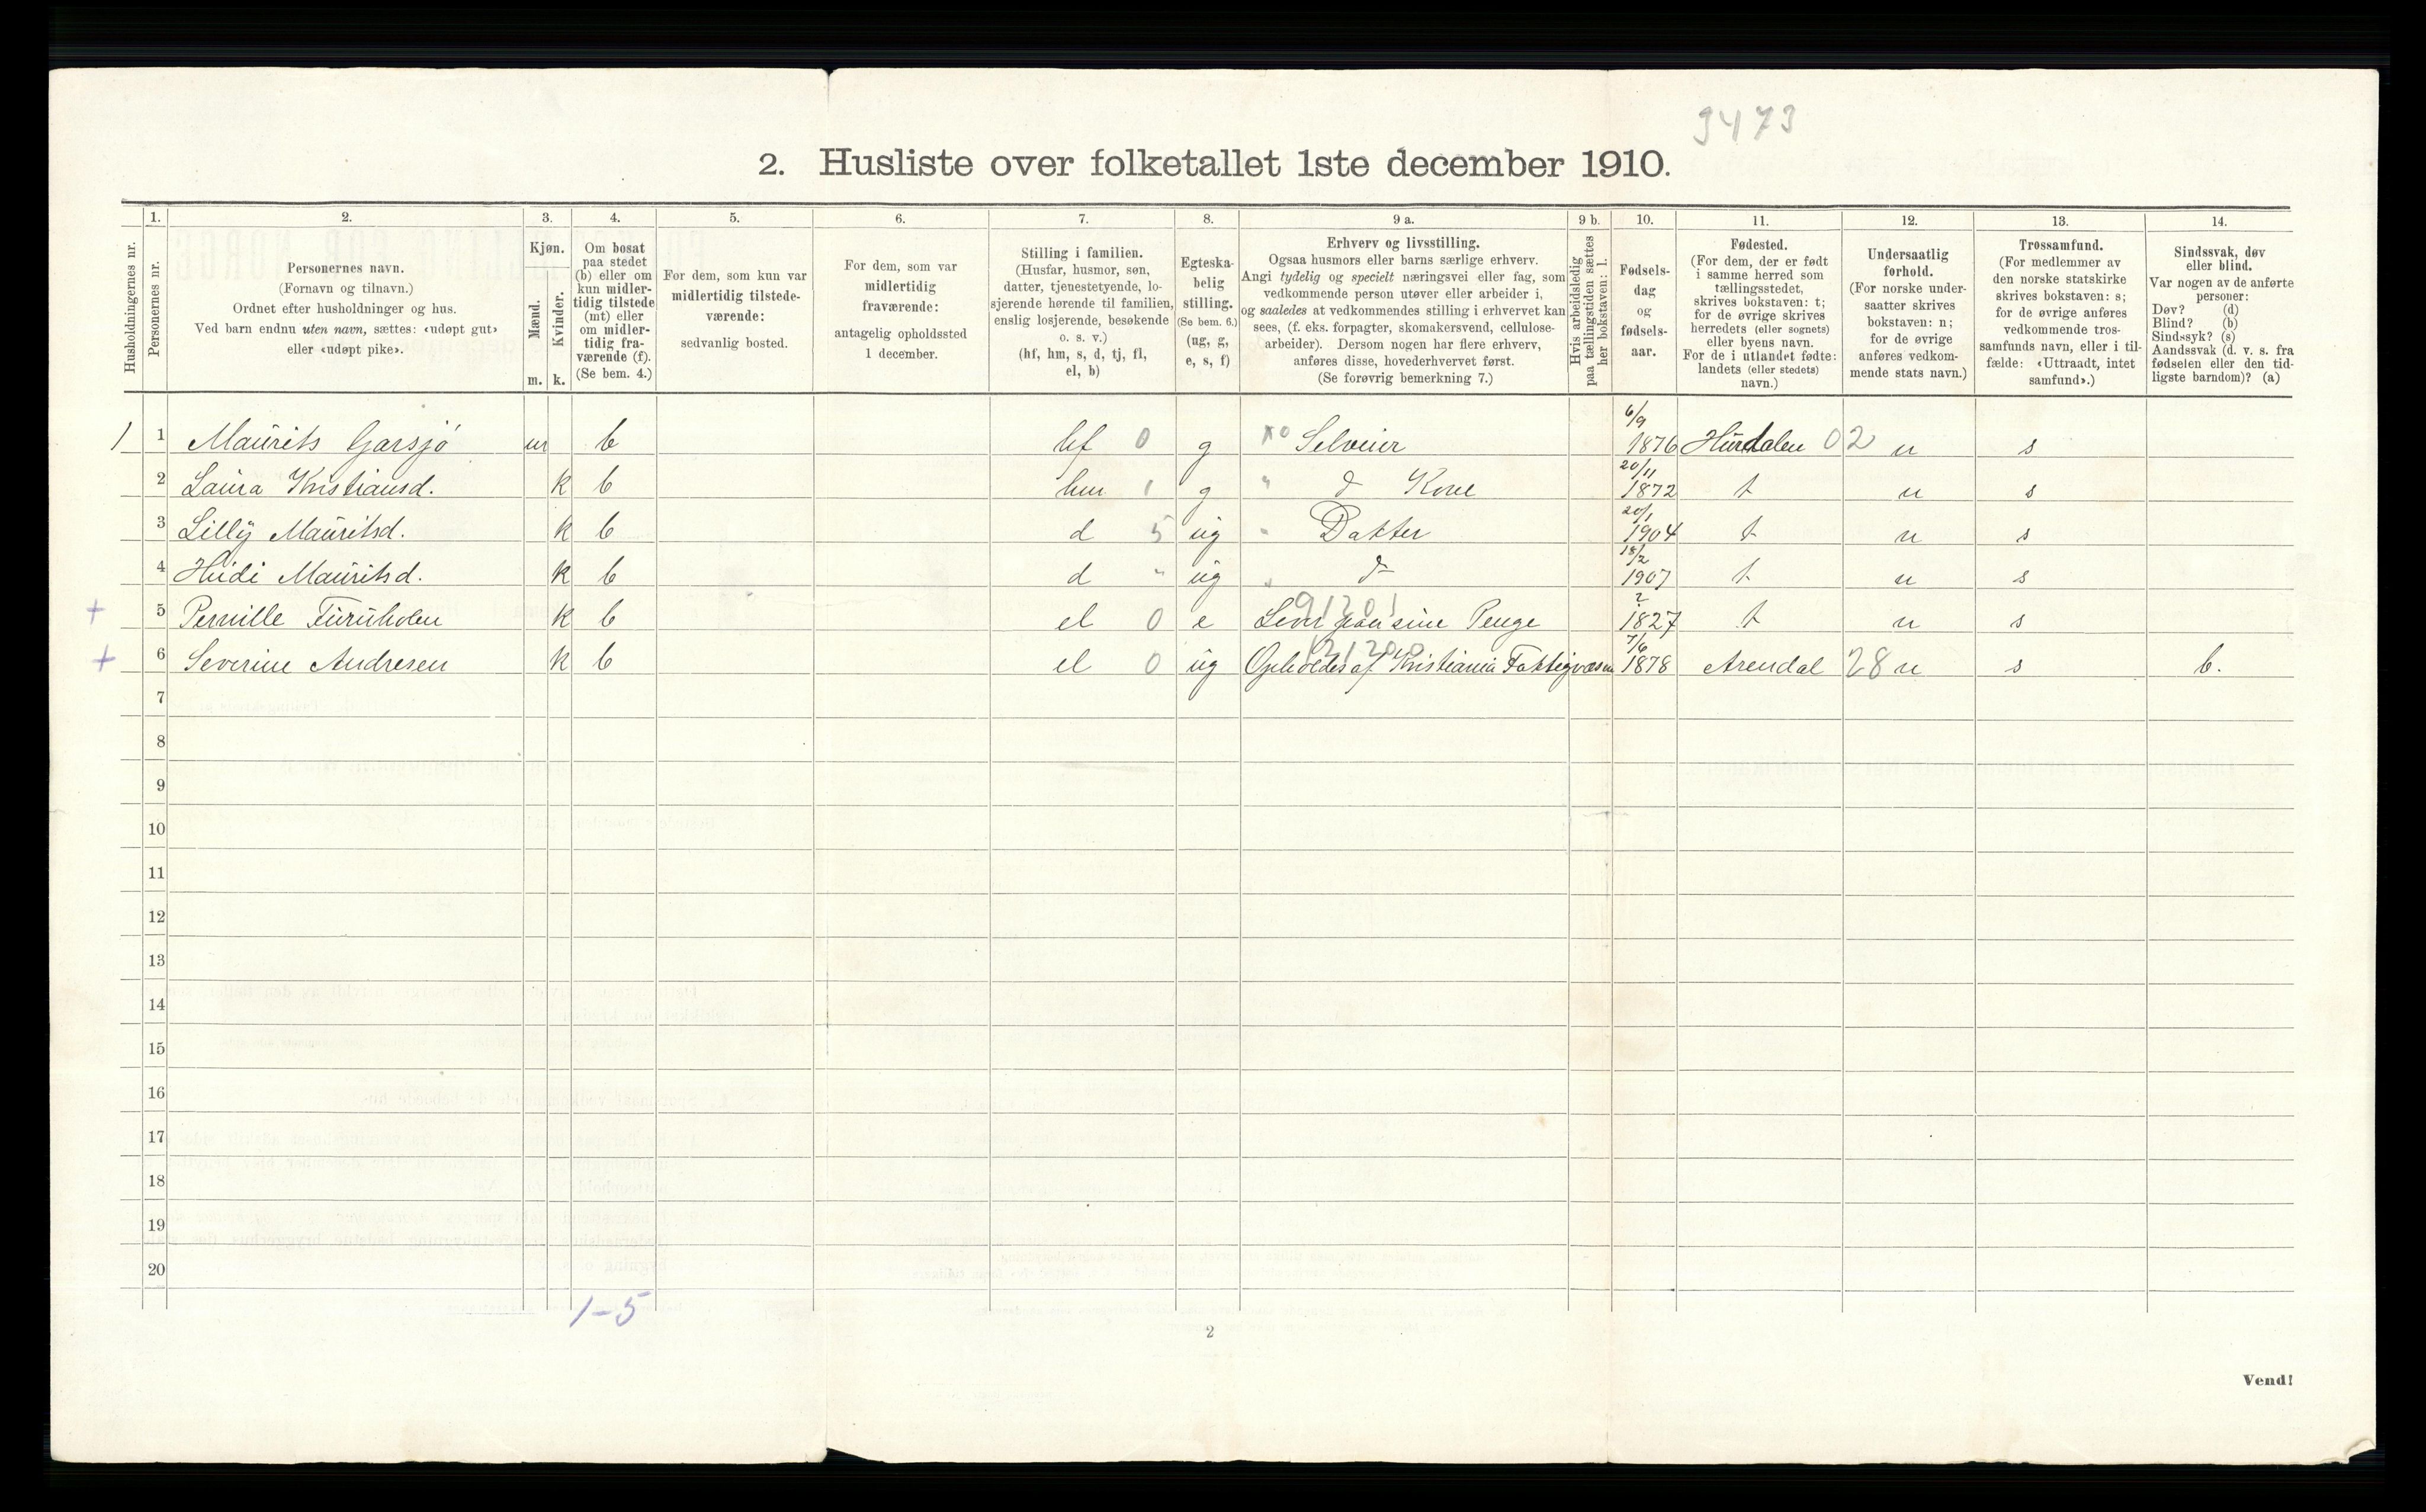 3473
2. Husliste over folketallet 1ste december 1910.
Husholdningernes nr.
1.
Personernes nr.
2.
Personernes navn.
(Fornavn og tilnavn.)
Ordnet efter husholdninger og hus.
Ved barn endnu uten navn, sættes: «udøpt gut»
eller «udøpt pike».
3.
Kjøn.
Mænd.
Kvinder.
m. k.
4.
Om bosat
paa stedet
(b) eller om
kun midler-
tidig tilstede
(mt) eller
om midler-
tidig fra-
værende (f).
(Se bem. 4.)
5.
For dem, som kun var
midlertidig tilstede-
værende:
sedvanlig bosted.
6.
For dem, som var
midlertidig
fraværende:
antagelig opholdssted
1 december.
7.
Stilling i familien.
(Husfar, husmor, søn,
datter, tjenestetyende, lo-
sjerende hørende til familien,
enslig losjerende, besøkende
o. s. v.)
(hf, hm, s, d, tj, fl,
el, b)
8.
Egteska-
belig
stilling.
(Se bem. 6.)
(ug, g,
e, s, f)
9 a.
Erhverv og livsstilling.
Ogsaa husmors eller barns særlige erhverv.
Angi tydelig og specielt næringsvei eller fag, som
vedkommende person utøver eller arbeider i,
og saaledes at vedkommendes stilling i erhvervet kan
sees, (f. eks. forpagter, skomakersvend, cellulose-
arbeider). Dersom nogen har flere erhverv,
anføres disse, hovederhvervet først.
(Se forøvrig bemerkning 7.)
9 b.
Hvis arbeidsledig
paa tællingstiden sættes
her bokstaven: l.
10.
Fødsels-
dag
og
fødsels-
aar.
11.
Fødested.
(For dem, der er født
i samme herred som
tællingsstedet,
skrives bokstaven: t;
for de øvrige skrives
herredets (eller sognets)
eller byens navn.
For de i utlandet fødte:
landets (eller stedets)
navn.)
12.
Undersaatlig
forhold.
(For norske under-
saatter skrives
bokstaven: n;
for de øvrige
anføres vedkom-
mende stats navn.)
13.
Trossamfund.
(For medlemmer av
den norske statskirke
skrives bokstaven: s;
for de øvrige anføres
vedkommende tros-
samfunds navn, eller i til-
fælde: «Uttraadt, intet
samfund».)
14.
Sindssvak, døv
eller blind.
Var nogen av de anførte
personer:
Døv? (d)
Blind? (b)
Sindssyk? (s)
Aandssvak (d. v. s. fra
fødselen eller den tid-
ligste barndom)? (a)
1 1 Maurits Garsjö m b hf 0 g Selveier 6/9 1876 Hurdalen 02 n s
2 Laura Kristiansd. k b hm 1 g " d Kone 20/11 1872 t n s
3 Lilly Mauritsd. k b d 5 ug " Datter 20/1 1904 t n s
4 Heidi Mauritsd. k b d " ug " d 18/2 1907 t n s
+ 5 Pernille Furuholen k b el 0 e Lever paa sine Penge ? 1827 t n s
+ 6 Severine Andresen k b el 0 ug Opholdes af Kristiania Fattigvæsen 7/6 1878 Arendal 28 n s b.
7
8
9
10
11
12
13
14
15
16
17
18
19
20
1-5
2
Vend!